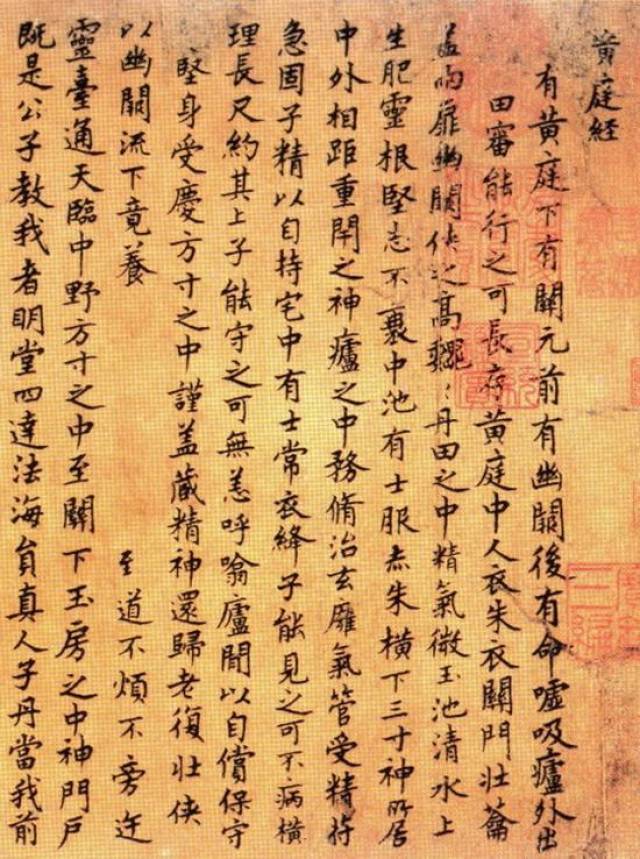 黃庭経
有黃庭下有關元前有幽闕後有命噓吸廬外出
田審能行之可長存黃庭中人衣朱衣關門壯蘥
盖兩扉幽闕俠之高巍〻丹田之中精氣微玉池清水上
生肥靈根堅志不衰中池有士服赤朱橫下三寸神所居
中外相距重閇之神廬之中務脩治玄廱氣管受精符
急固子精以自持宅中有士常衣絳子能見之可不病橫
理長尺約其上子能守之可無恙呼噏廬間以自償保守
堅身受慶方寸之中謹盖藏精神還歸老復壯俠
以幽闕流下竟養 至道不煩不旁迕
靈臺通天臨中野方寸之中至關下玉房之中神門戶
既是公子教我者明堂四達法海員真人子丹當我前